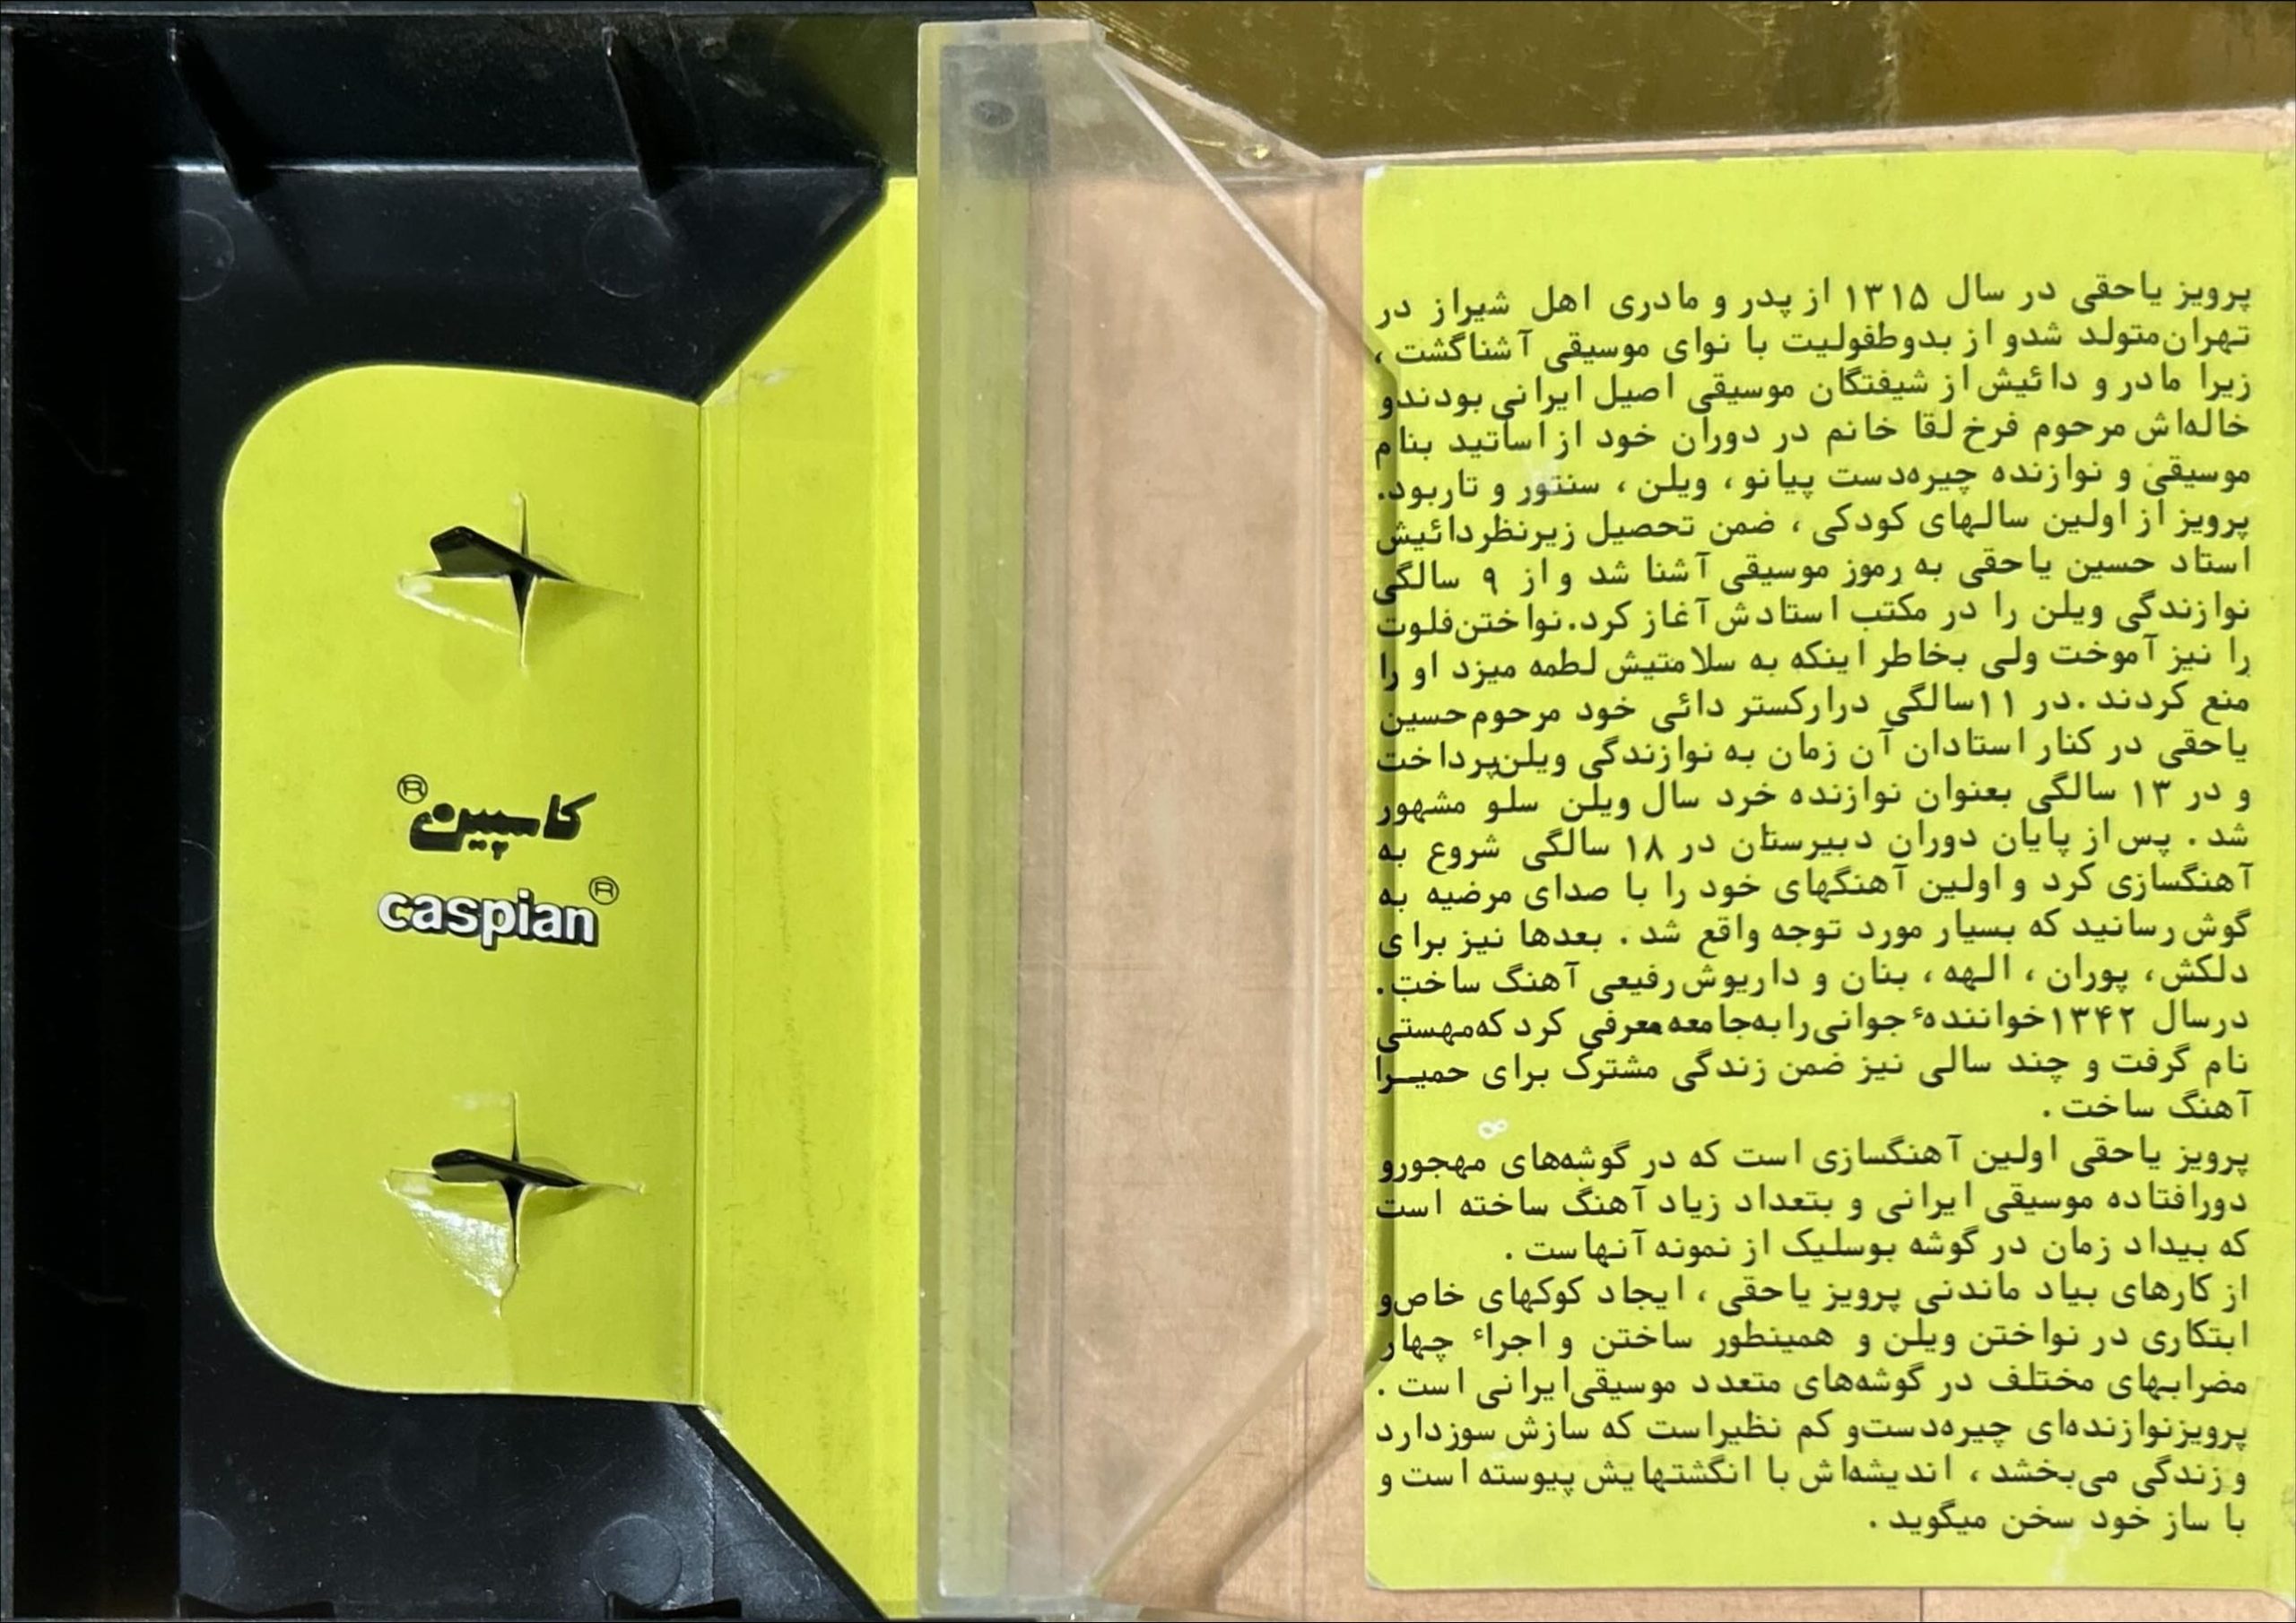 کاسپین®
caspian®
پرویز یاحقی در سال ۱۳۱۵ از پدر و مادری اهل شیراز در
تهران متولد شدو از بدوطفولیت با نوای موسیقی آشناگشت،
زیرا مادر و دائیش از شیفتگان موسیقی اصیل ایرانی بودندو
خاله‌اش مرحوم فرخ لقا خانم در دوران خود از اساتید بنام
موسیقی و نوازنده چیره‌دست پیانو، ویلن، سنتور و تاربود.
پرویز از اولین سالهای کودکی، ضمن تحصیل زیرنظر دائیش
استاد حسین یاحقی به رموز موسیقی آشنا شد و از ۹ سالگی
نوازندگی ویلن را در مکتب استادش آغاز کرد. نواختن فلوت
را نیز آموخت ولی بخاطر اینکه به سلامتیش لطمه میزد او را
منع کردند. در ۱۱سالگی درارکستر دائی خود مرحوم حسین
یاحقی در کنار استادان آن زمان به نوازندگی ویلن پرداخت
و در ۱۳ سالگی بعنوان نوازنده خرد سال ویلن سلو مشهور
شد. پس از پایان دوران دبیرستان در ۱۸ سالگی شروع به
آهنگسازی کرد و اولین آهنگهای خود را با صدای مرضیه به
گوش رسانید که بسیار مورد توجه واقع شد. بعدها نیز برای
دلکش، پوران، الهه، بنان و داریوش رفیعی آهنگ ساخت.
درسال ۱۳۴۲ خوانندهٔ جوانی را به جامعه معرفی کرد که مهستی
نام گرفت و چند سالی نیز ضمن زندگی مشترک برای حمیـرا
آهنگ ساخت.
پرویز یاحقی اولین آهنگسازی است که در گوشه‌های مهجورو
دورافتاده موسیقی ایرانی و بتعداد زیاد آهنگ ساخته است
که بیداد زمان در گوشه بوسلیک از نمونه آنهاست.
از کارهای بیاد ماندنی پرویز یاحقی، ایجاد کوکهای خاص و
ابتکاری در نواختن ویلن و همینطور ساختن و اجراء چهار
مضرابهای مختلف در گوشه‌های متعدد موسیقی ایرانی است.
پرویز نوازنده‌ای چیره‌دست و کم نظیر است که سازش سوزدارد
و زندگی می‌بخشد، اندیشه‌اش با انگشتهایش پیوسته است و
با ساز خود سخن میگوید.